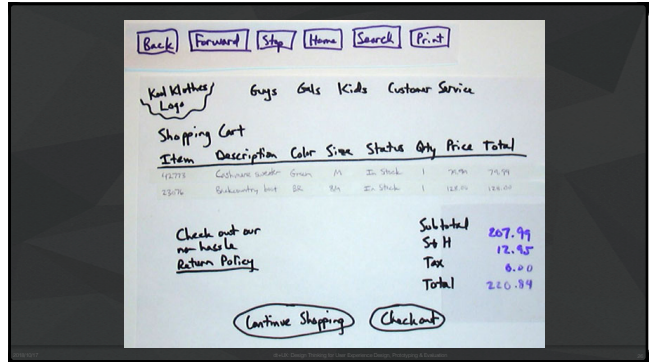 Back Forward Stop Home Search Print
Kool Klothes Logo
Guys Gals Kids Customer Service
Shopping Cart
Item Description Color Size Status Qty Price Total
42773 Cashmere sweater Green M In Stock 1 79.99 79.99
23076 Backcountry boot BR 8½ In Stock 1 128.00 128.00
Check out our
no-hassle
Return Policy
Subtotal 207.99
S+H 12.95
Tax 0.00
Total 220.89
Continue Shopping Checkout